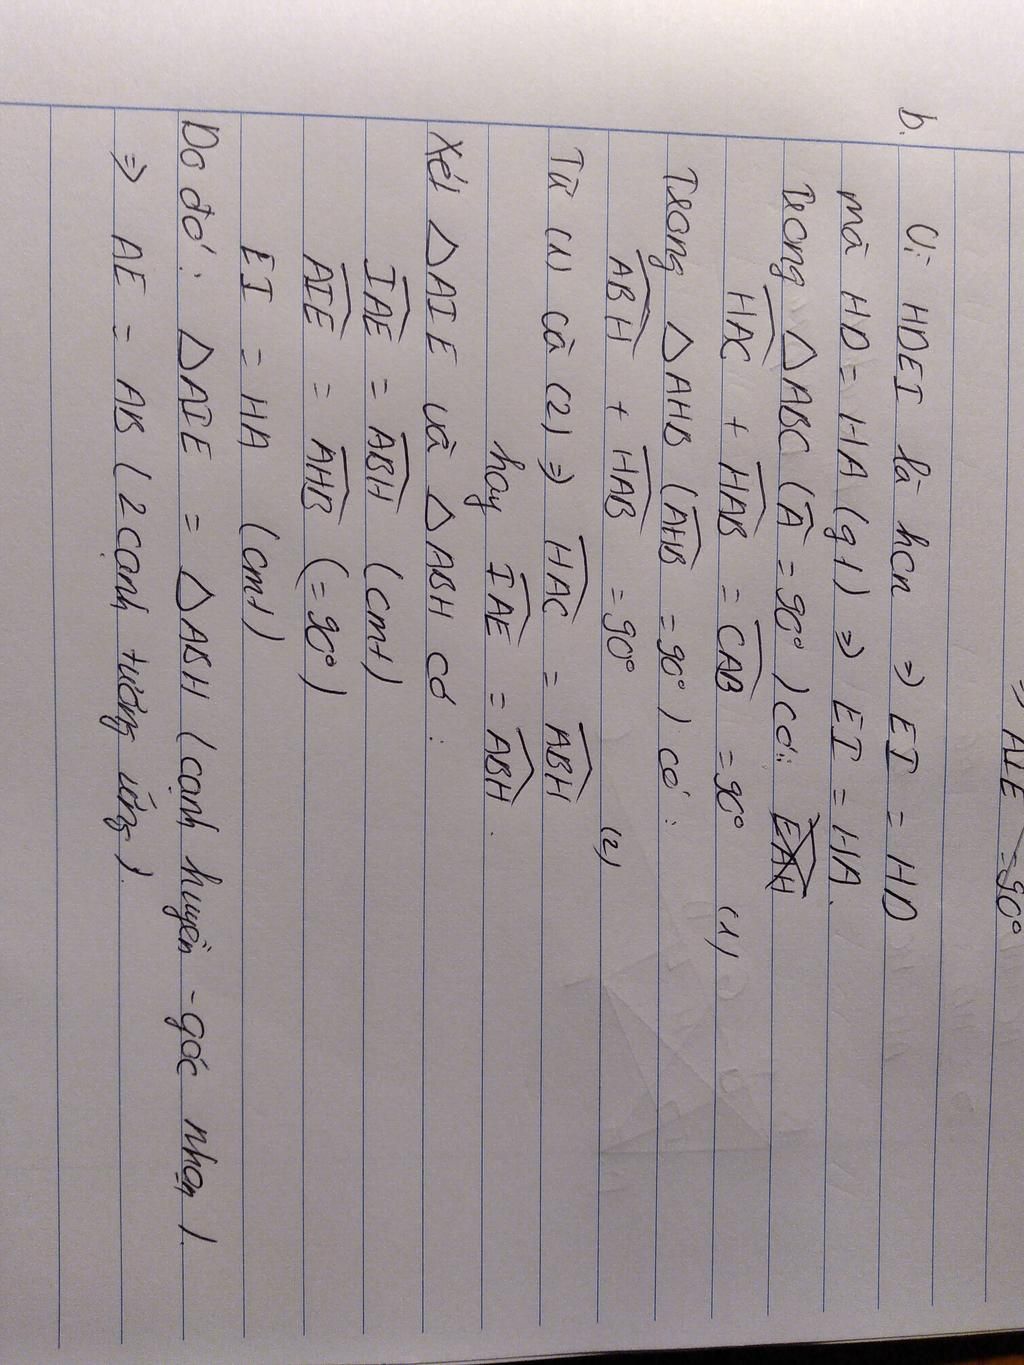 ⇒ AIE = 90°
b. Vì HDEI là hcn ⇒ EI = HD
mà HD = HA (gt) ⇒ EI = HA.
Trong △ABC (Â = 90°) có:
HAC + HAB = CAB = 90° (1)
Trong △AHB (AHB = 90°) có:
ABH + HAB = 90° (2)
Từ (1) cà (2) ⇒ HAC = ABH
hay IAE = ABH.
Xét △AIE và △ABH có:
IAE = ABH (cmt)
AIE = AHB (= 90°)
EI = HA (cmt)
Do đó: △AIE = △ABH (cạnh huyền - góc nhọn).
⇒ AE = AB (2 cạnh tương ứng).